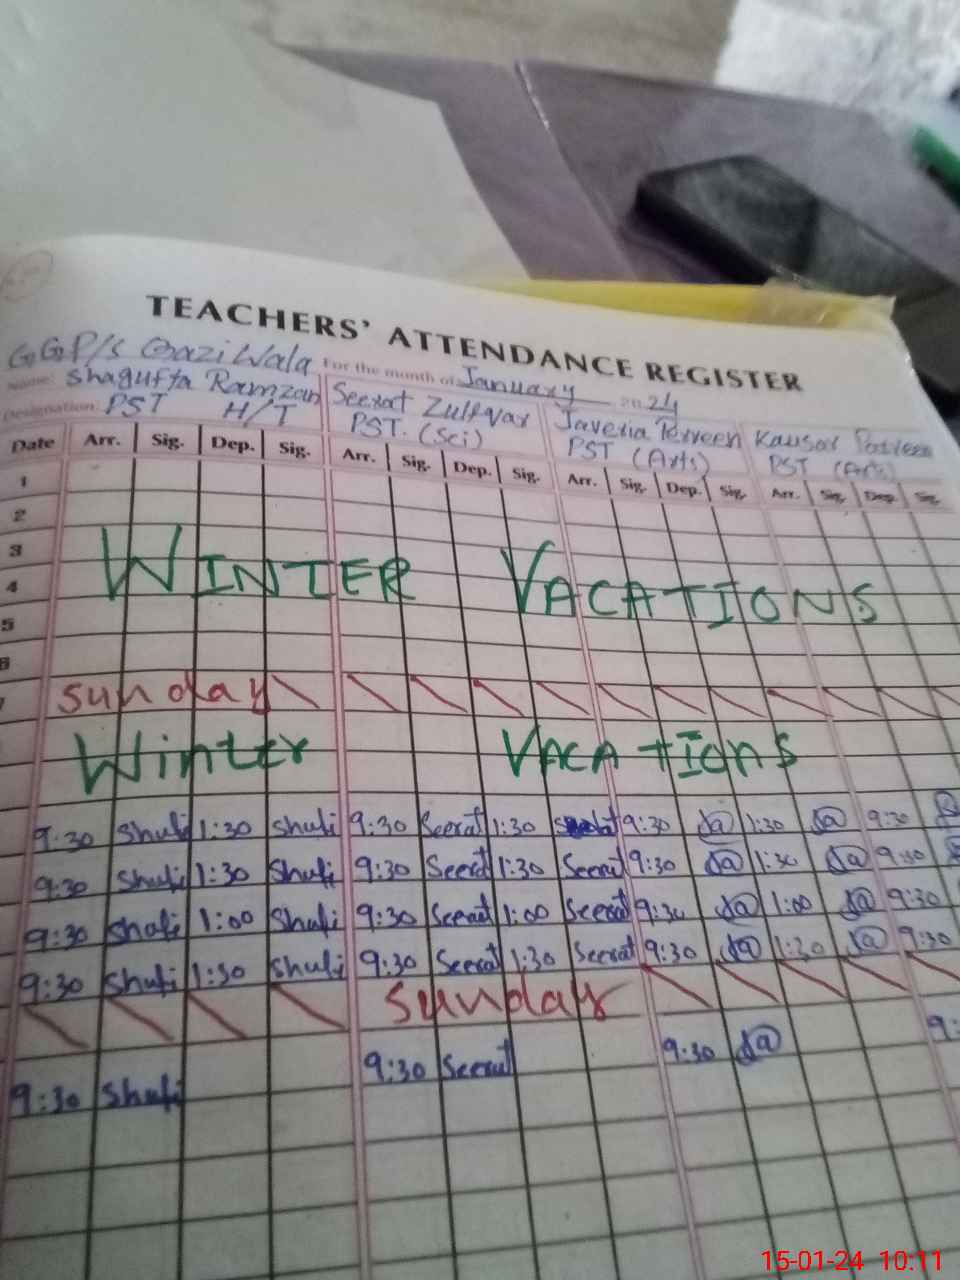 TEACHERS' ATTENDANCE REGISTER
G.G.P/S Qazi Wala For the month of January 2024
Name: Shagufta Ramzan Seerat Zulfqar Javeria Parveen Kausar Parveen
Designation: PST H/T PST. (Sci) PST (Arts) PST (Arts)
Date Arr. Sig. Dep. Sig. Arr. Sig. Dep. Sig. Arr. Sig. Dep. Sig. Arr. Sig. Dep. Sig.
1
2
3
WINTER VACATIONS
4
5
6
7 Sunday
Winter VACATIONS
9:30 Shufi 1:30 Shufi 9:30 Seerat 1:30 9:30 1:30 9:30
9:30 Shufi 1:30 Shufi 9:30 Seerat 1:30 Seerat 9:30 1:30 9:30
9:30 Shufi 1:00 Shufi 9:30 Seerat 1:00 Seerat 9:30 1:00 9:30
9:30 Shufi 1:30 Shufi 9:30 Seerat 1:30 Seerat 9:30 1:30 9:30
Sunday
9:30 Shufi 9:30 Seerat 9:30 9:
15-01-24 10:11